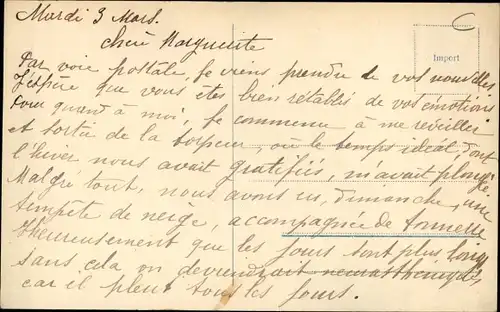 Mardi 3 Mars.
Chère Marguerite
Import
Par voie postale, je viens prendre de vos nouvelles.
J'espère que vous êtes bien rétablés de vos émotions
quand à moi, je commence à me réveiller
et sortir de la torpeur, où le temps idéal, dont
l'hiver nous avait gratifiés, m'avait plongé.
Malgré tout, nous avons eu, dimanche, une
tempête de neige, accompagnée de tonnerre
Heureusement que les jours sont plus longs
sans cela on deviendrait neurasthéniques
car il pleut tous les jours.